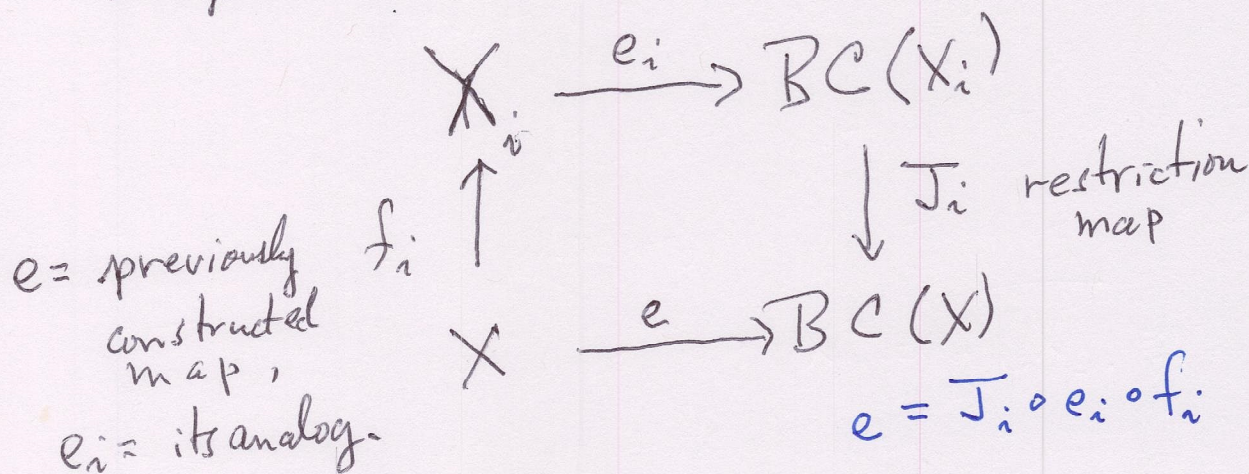 X_i e_i → BC(X_i)
↑ f_i ↓ J_i restriction map
X e → BC(X)
e = previously
constructed
map,
e_i = its analog.
e = J_i ∘ e_i ∘ f_i